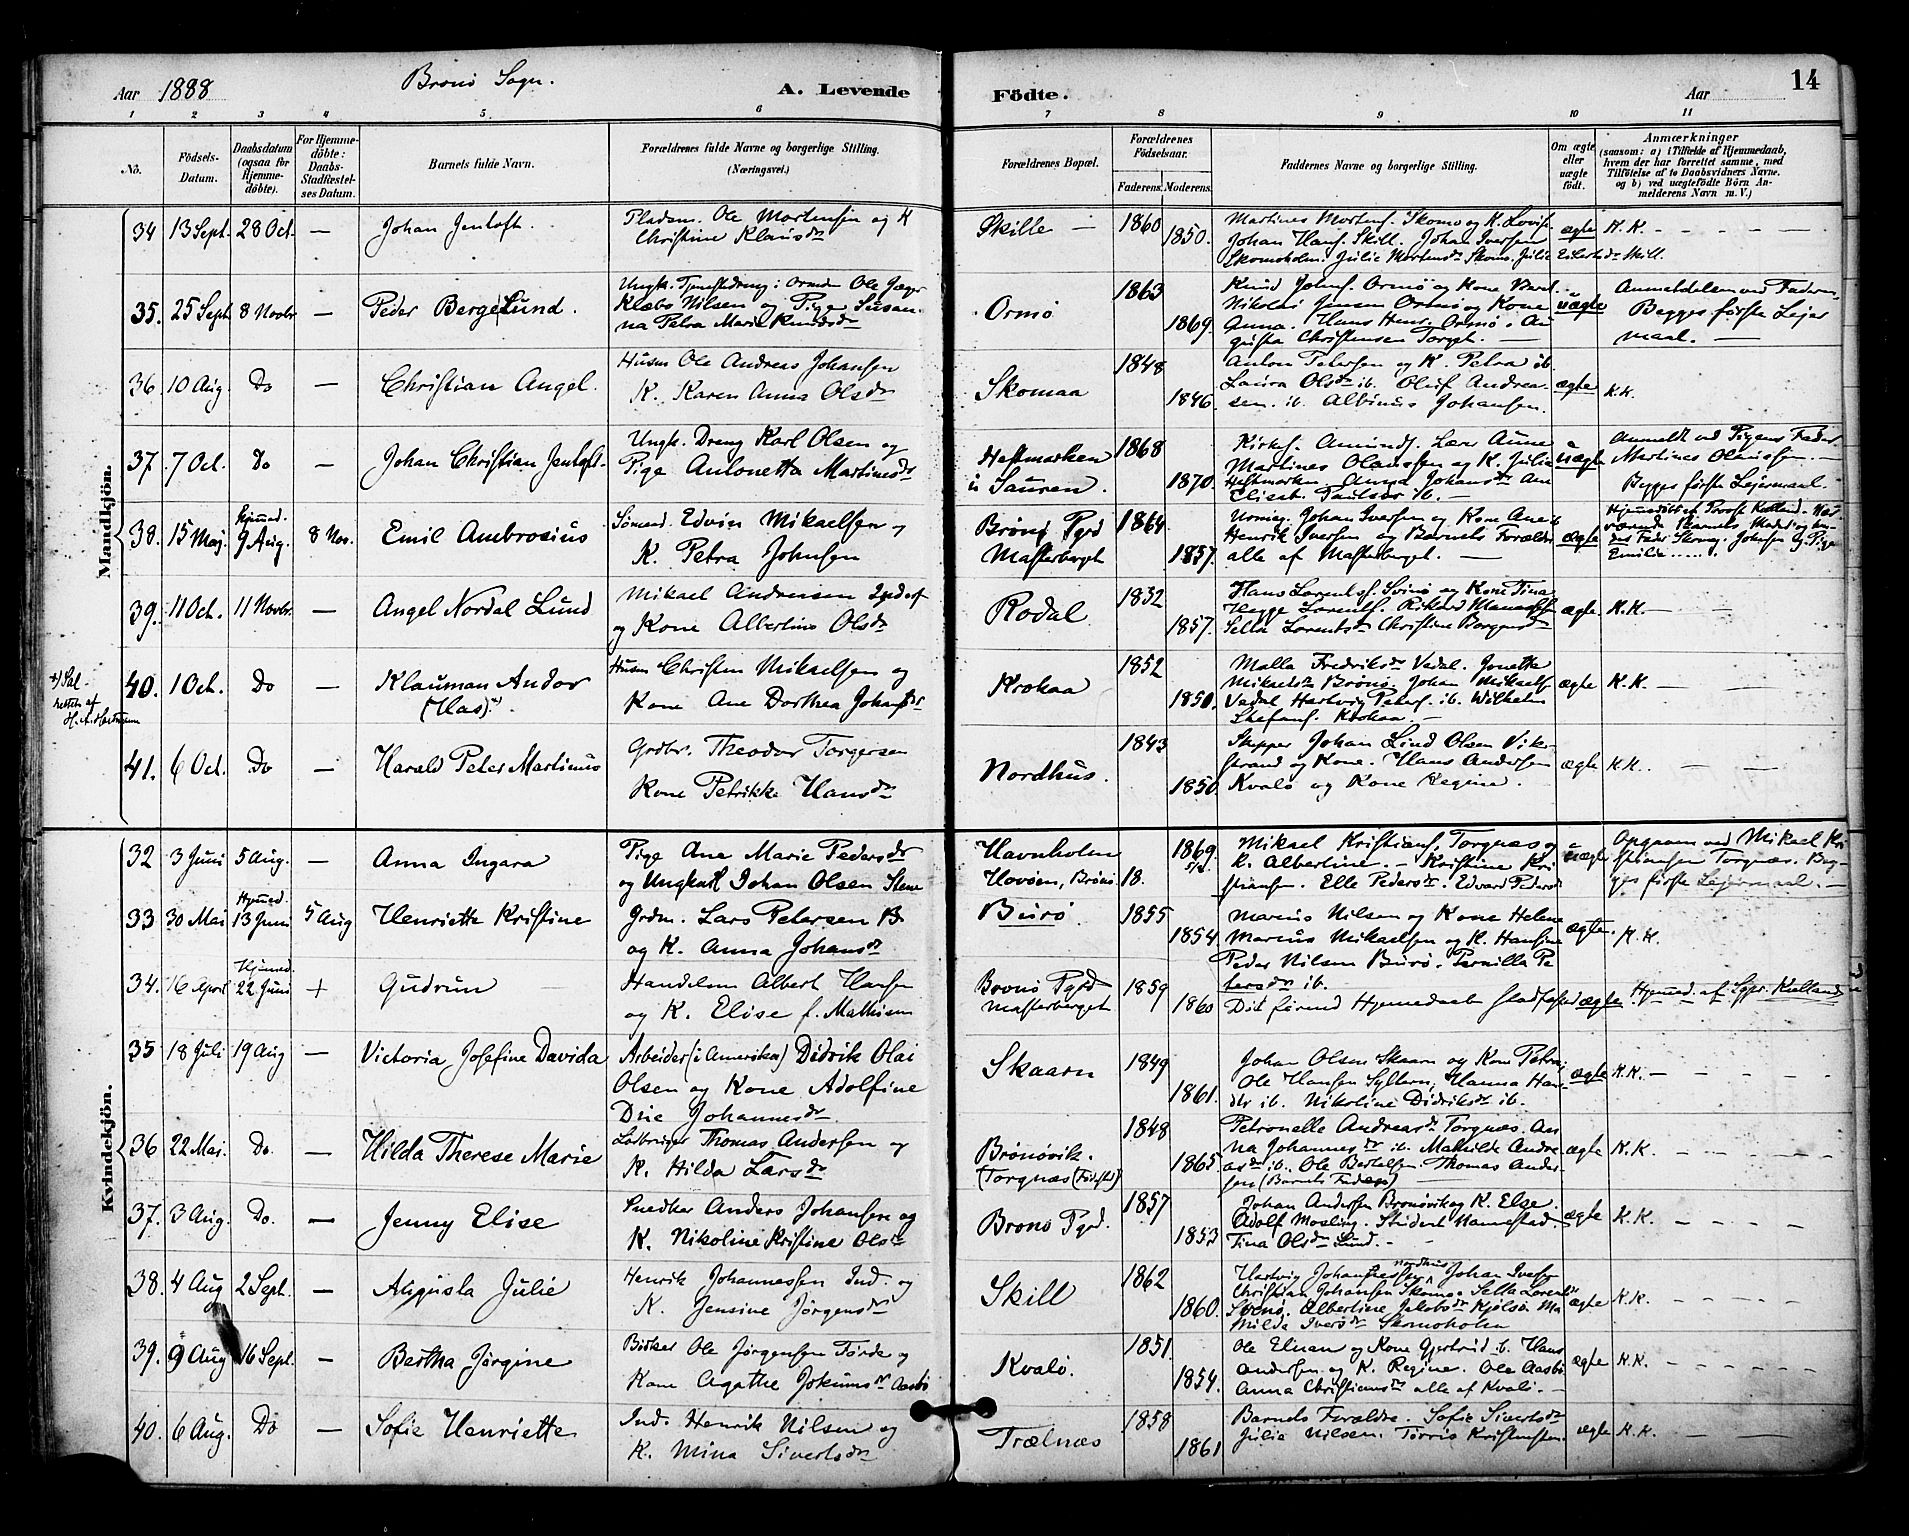 Aar 1888
Brønø Sogn.
A. Levende Födte.
Aar
14
1 2 3 4 5 6 7 8 9 10 11
No.
Födsels-Datum.
Daabsdatum (ogsaa for Hjemmedöbte).
For Hjemmedöbte: Daabs-Stadfæstelses Datum.
Barnets fulde Navn.
Forældrenes fulde Navne og borgerlige Stilling.
(Næringsvei.)
Forældrenes Bopæl.
Forældrenes Födselsaar.
Faderens. Moderens.
Faddernes Navne og borgerlige Stilling.
Om ægte eller uægte födt.
Anmærkninger
(saasom: a) i Tilfælde af Hjemmedaab, hvem der har forrettet samme, med Tilföielse af to Daabsvidners Navne, og b) ved uægtefödte Börn Anmelderens Navn m. V.)
Mandkjön.
34 13 Sept. 28 Oct. — Johan Jentoft.
Pladsm. Ole Mortensen og K
Christine Klausdr
Skille — 1860 1850.
Martines Mortens. Skomo og K. Lovise.
Johan Hans. Skill. Johan Iversen
Skomoholm. Julie Mortensdr Skomo. Julie Eilertsdr Skill.
ægte K.K. — — —
35. 25 Sept 8 Novbr — Peder Berge Lund.
Ungk. Tjenestedreng i Ormø Ole Jæger
Klæbo Nilsen og Pige Susan-
na Petra Marie Knudsdr
Ormø 1863 1869.
Knud Johns. Ormø og Kone
Nikolai Jensen Ormø og Kone
Anna. Hans Henr. Ormø. Au
gusta Christensen Torget. —
uægte
Anmeldelsen ved Faderen.
Begges første Leier
maal. —
36 10 Aug. Do — Christian Angel.
Husm Ole Andreas Johansen
K. Karen Anna Olsdr
Skomaa 1848 1846.
Anton Petersen og K. Petra ib.
Laura Olsdr ib. Oluf Andrea-
sen. ib. Albinus Johansen.
ægte K.K.
37. 7 Oct. Do — Johan Christian Jentoft.
Ungk. Dreng Karl Olsen og
Pige Antonetta Martinusdr
Heftmarken
i Sauren. 1868 1870.
Kirkes. Amunds. Lære Aune
Martines Olaussen og K. Julie
Heftmarken. Anna Johansdr
Elisab. Paulsdr ib. —
uægte
Anmeldt ved Pigens Fader
Martines Olaussen. —
Begges første Leiermaal.
38. 15 Maj. Hjemmed. 9 Aug. 8 Nov. Emil Ambrosius
Sømand. Edvin Mikaelsen og
K. Petra Johnsen
Brønø Pgd
Masterberget 1864 1857.
Johan Iversen og Kone Ane
Henrik Iversen og Barnets Forældre
alle af Masterberget. —
ægte
Hjemmedøbt af Provst Kulland.
39. 11 Oct. 11 Novbr. — Angel Nordal Lund
Mikael Andreasen
og Kone Albertine Olsdr
Rodal 1832 1857.
Hans Lorents. Svinø og Kone Tina
Hegge Lorents. Rikard
Sella Lorentsdr Christine
ægte K.K. — —
40. 1 Oct. Do — Klauman Andor
(Has)*).
Husm Christen Mikaelsen og
Kone Ane Dorthea Johansdr
Krokaa 1852 1850.
Malla Fredriksdr Vedal. Jonette
Mikaelsdr Brønø. Johan Mikaels
Vedal Hartvig Peters. ib. Wilhelm
Stefans. Krokaa. —
ægte K.K. — —
41. 6 Oct. Do — Harald Peter Martinus
Grdbr. Theodor Torgersen
Kone Petrikke Hansdr
Nordhus. 1843 1850.
Skipper Johan Lind Olsen Vik-
strand og Kone. Hans Andersen
Kvalø og Kone Regine.
ægte K.K. — —
Kvindekjön.
32 3 Juni 5 Aug. — Anna Ingara
Pige Ane Marie Pedersdr
og Ungkarl Johan Olsen Stene
Havnholm
Hovøen, Brønø 18. 1869
Mikael Kristians. Torgnæs og
K. Albertine. — Kristine Kri
stiansen. Elle Pedersdr. Edvard Peders
uægte
Opgivet ved Mikael Kri
stiansen Torgnæs. Beg-
ges første Leiermaal. —
33 30 Mai Hjemmed. 13 Juni 5 Aug Henriette Kristine
Grdm. Lars Petersen B
og K. Anna Johansdr
Burø 1855 1854
Marius Nilsen og Kone Helene
Marius Mikaelsen og K. Hansine
Peder Nilsen Burø. Pernilla Pe
tersdr ib.
ægte. K.K.
34. 16 April Hjemmed. 22 Juni + Gudrun
Handelsm Albert Hansen
og K. Elise f. Mathisen
Brønø Pgd
Masterberget 1859 1860
ægte. Hjemmed. af Sgpr. Kulland
35 18 Juli 19 Aug — Victoria Josefine Davida
Arbeider (i Amerika) Didrik Olai
Olsen og Kone Adolfine
Drie Johannesdr
Skaarn 1849 1861.
Johan Olsen Skaarn og Kone Petra,
Ole Hansen Syltern, Hanna Han-
dtr ib. Nikoline Didriksdr ib.
ægte K.K. — — —
36 22 Mai. Do. — Hilda Therese Marie
Thomas Andersen og
K. Hilda Larsdr
Brønøvik.
(Torgnæs (Fødested) 1848 1865
Petronelle Andreasdr Torgnæs. An
na Johannesdr ib. Mathilde Andre
asdr ib. Ole Bertelsen. Thomas Ander-
sen (Barnets Fader) —
ægte K.K. — —
37. 3 Aug. Do. — Jenny Elise
Snedker Anders Johansen og
K. Nikoline Kristine Olsdr
Brønø Pgd. 1857 1853
Johan Andersen Brønøvik og K. Else.
Adolf Mosling. Student Hamestad
Tina Olsdr Lund. —
ægte K.K. — — —
38. 4 Aug 2 Sept. — Augusta Julie
Henrik Johannessen Ind. og
K. Jensine Jørgensdr
Skill 1862 1860.
Hartvig Johannessen Nordhus Johan Ivers
Christian Johansen Skomo. Sella Lorentsdr
Svinø. Albertine Jakobsdr Kjølsø
Milda Iversdr Skomoholm
ægte K.K. — — —
39. 9 Aug 16 Sept. — Bertha Jørgine
Bødker Ole Jørgensen Førde og
Kone Agathe Jokumsdr Aasbø
Kvalø. 1851. 1854.
Ole Elnan og Kone Gjertrud ib. Hans
Andersen og K. Regine. Ole Aasbø
Anna Christiansdr alle af Kvalø. —
ægte K.K. — — —
40. 6 Aug. Do — Sofie Henriette
Ind. Henrik Nilsen og
K. Mina Sivertsdr
Trælnæs 1858 1861
Barnets Forældre. Sofie Sivertsdr
Julie Nilsen. Tørris Kristensen.
ægte K.K. — —